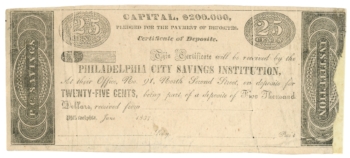 CAPITAL, $200.000,
PLEDGED FOR THE PAYMENT OF DEPOSITS.
25 25
Certificate of Deposite.
P.C. SAVINGS
INSTITUTION
This Certificate will be received by the
PHILADELPHIA CITY SAVINGS INSTITUTION,
At their Office, No. South Second Street, on deposite for
TWENTY-FIVE CENTS, being part of a deposite of Five Thousand
Dollars, received from
Philadelphia, June